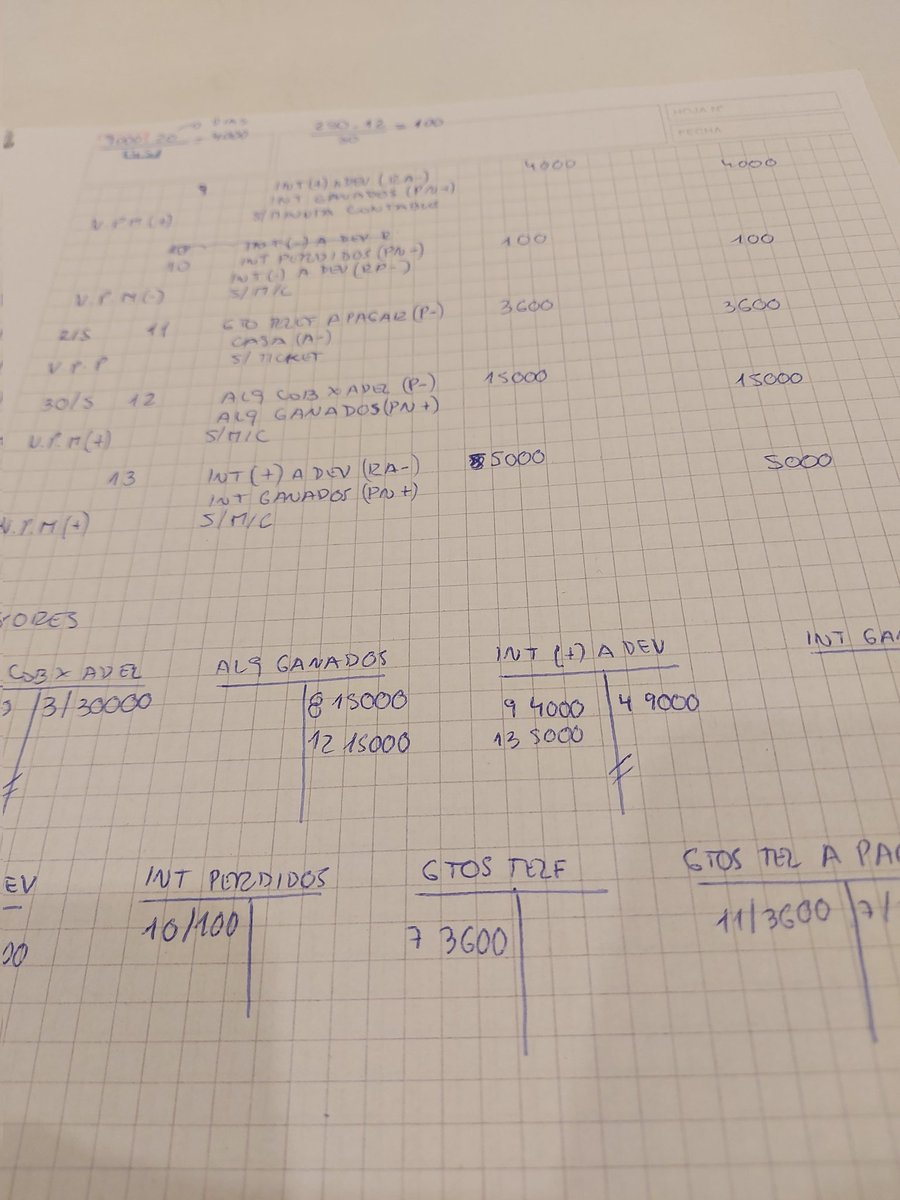 HOJA Nº
FECHA
DIAS
9000 . 20 = 4000
45
250 . 12 = 100
30
9 INT (+) A DEV (RA-) 4000 4000
INT GANADOS (PN+)
V.P.M (+) S/MINUTA CONTABLE
10 INT (-) A DEV R
10 INT PERDIDOS (PN-) 100 100
INT (-) A DEV (RP-)
V.P.M (-) S/M/C
2/5 11 GTO TELEF A PAGAR (P-) 3600 3600
CAJA (A-)
V.P.P S/TICKET
30/5 12 ALQ COB X ADEL (P-) 15000 15000
ALQ GANADOS (PN+)
V.P.M (+) S/M/C
13 INT (+) A DEV (RA-) 5000 5000
INT GANADOS (PN+)
V.P.M (+) S/M/C
YORES
COB X ADEL ALQ GANADOS INT (+) A DEV INT GAN
3/30000 8 15000 9 4000 4 9000
12 15000 13 5000
EV INT PERDIDOS GTOS TELF GTOS TEL A PAG
00 10/100 7 3600 11/3600 7/